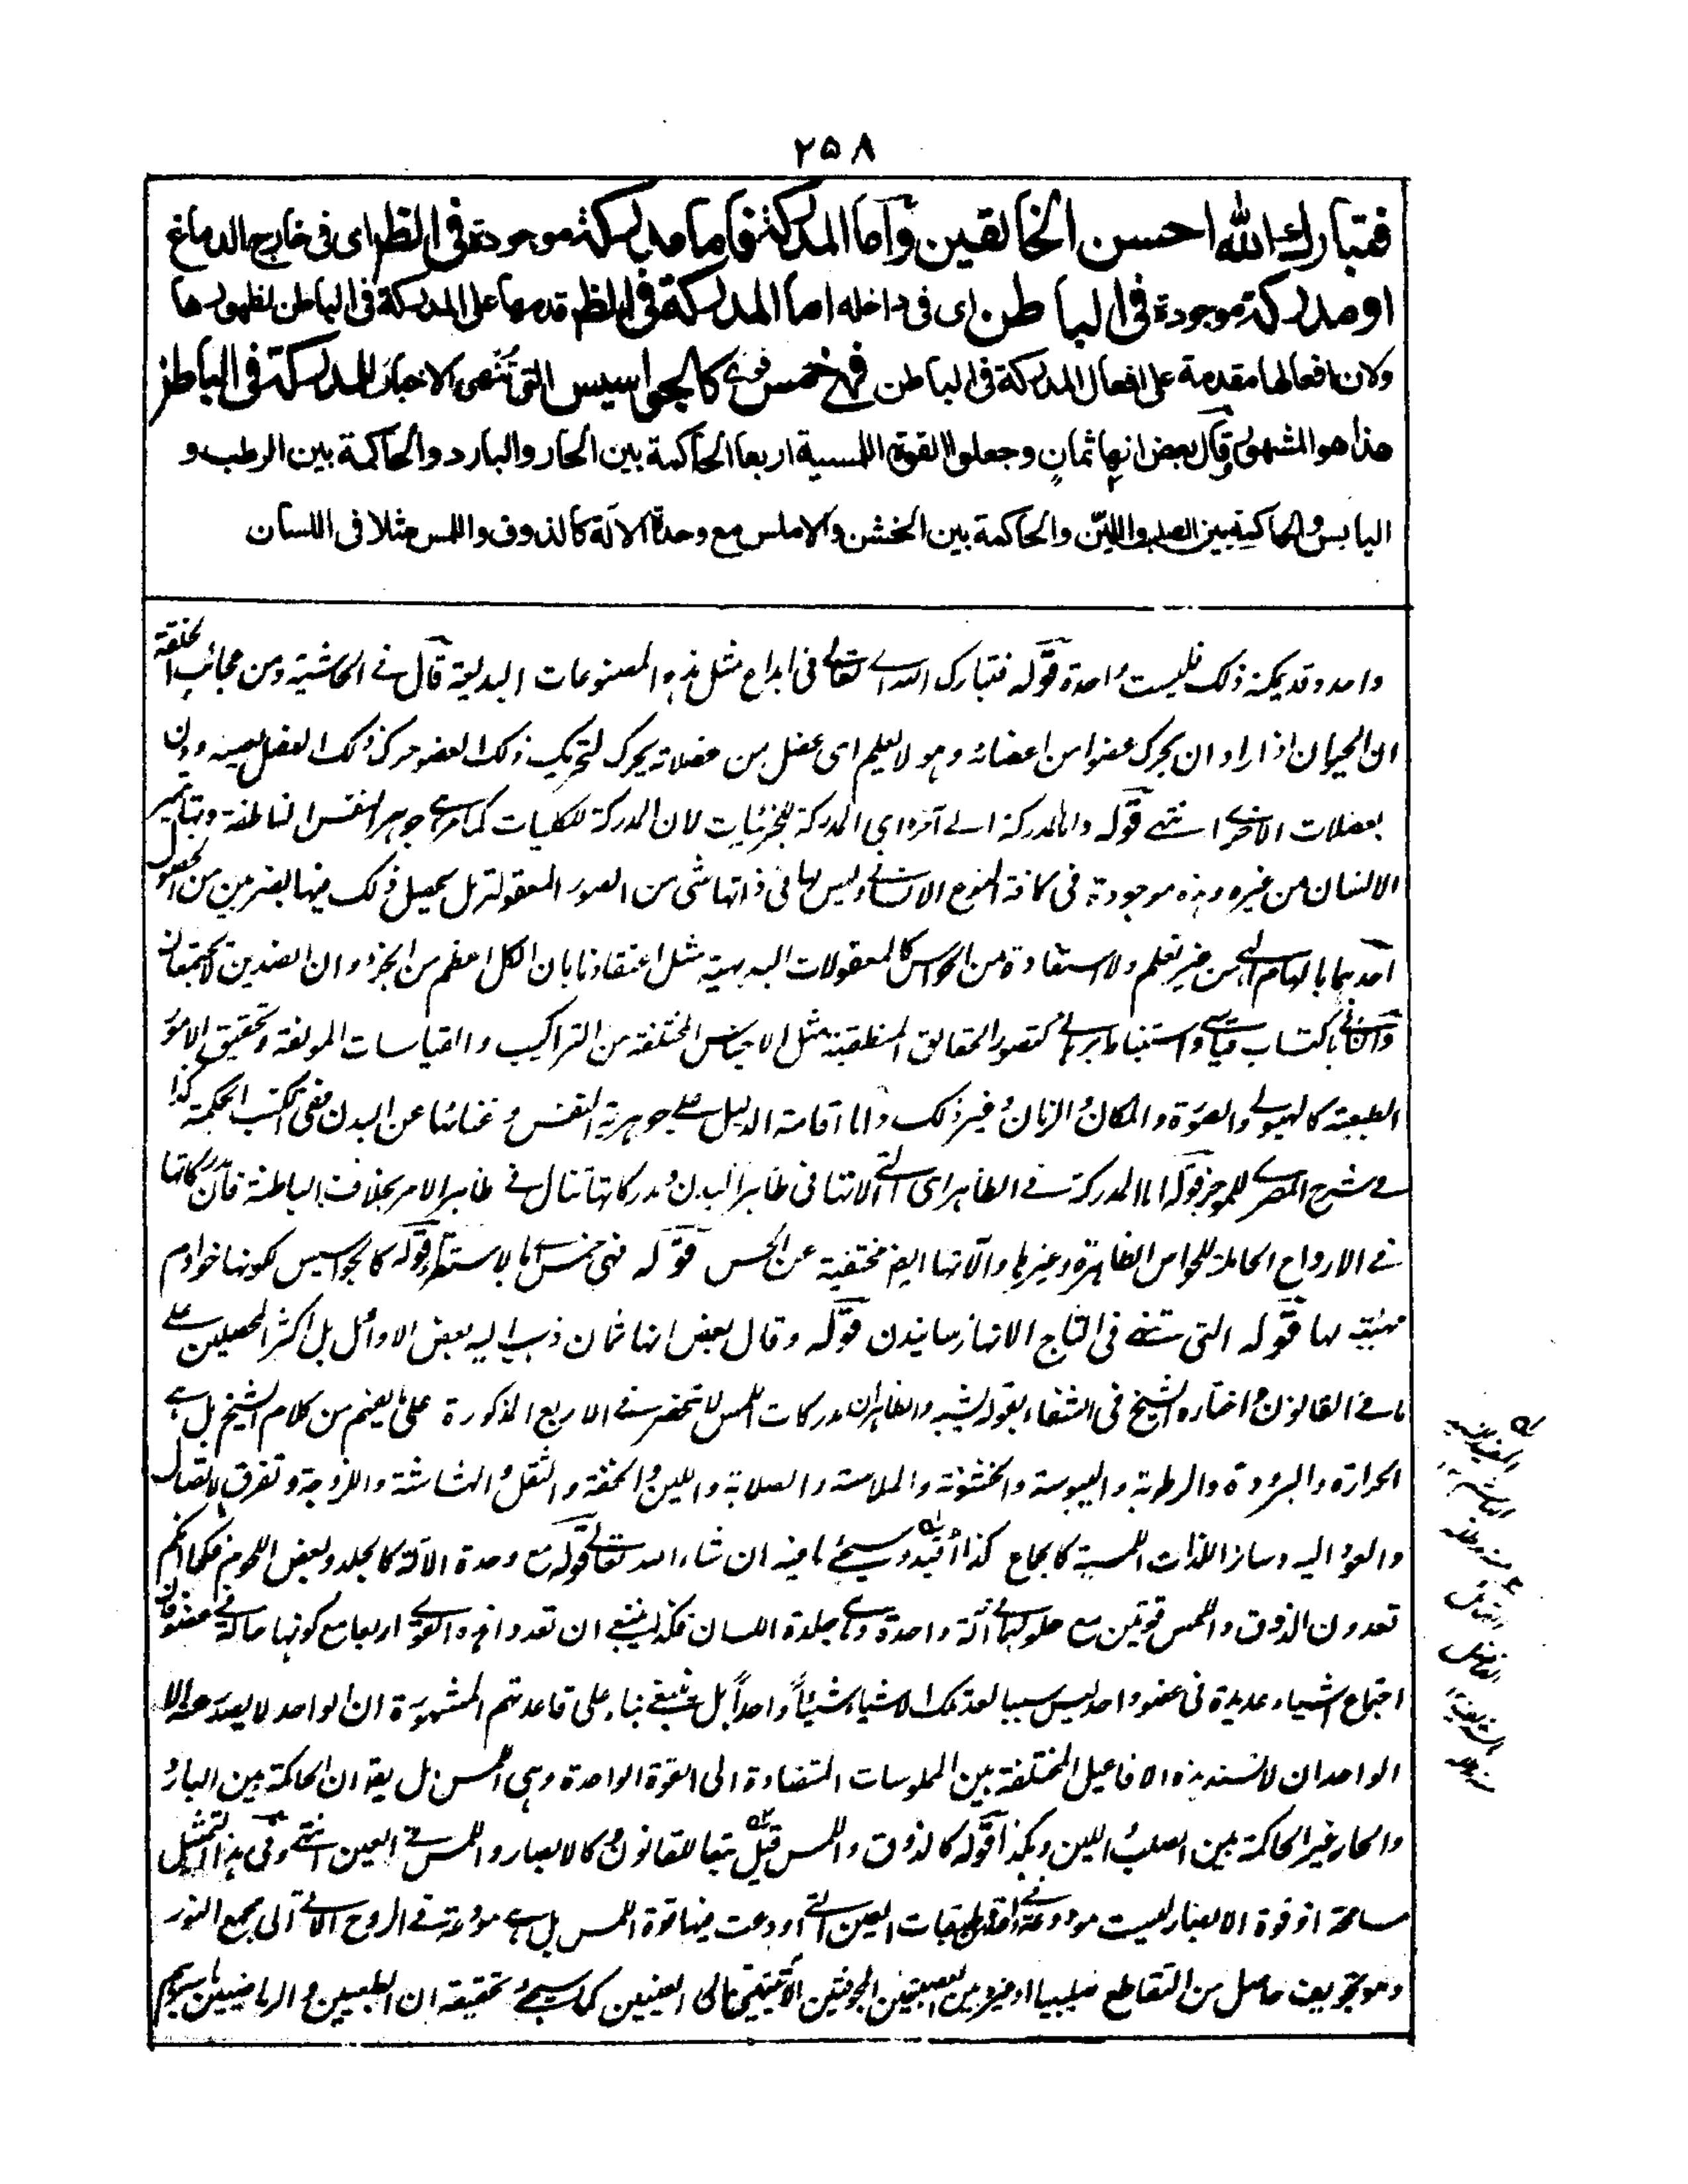 ٢٥٨
فتبارك الله احسن الخالقين وآما المدركة فاما مدركة موجودة فى الظهر اى فى خارج الدماغ
او مدركة موجودة فى الباطن اى فى داخله اما المدركة فى الظهر قدمها على المدركة فى الباطن لظهورها
ولان افعالها مقدمة على افعال المدركة فى الباطن فهى خمس قوى كالجواسيس التى تنهى الاخبار للمدركة فى الباطن
هذا هو المشهور وقال بعض انها ثمان وجعلوا القوة اللمسية اربعا الحاكمة بين الحار والبارد والحاكمة بين الرطب و
اليابس والحاكمة بين الصلب واللين والحاكمة بين الخشن والاملس مع وحدة الالة كالذوق واللمس مثلا فى اللسان
واحد وقد يمكنه ذلك فليست واحدة قوله فتبارك الله اے تعالے فى ابداع مثل هذه المصنوعات البديعة قال فے الحاشية ومن عجائب الخلقة
ان الحيوان اذا اراد ان يحرك عضوا من اعضائه وهو لا يعلم اى عضل من عضلاته يحرك لتحريك ذلك العضو حرك ذلك العضل بعينه دون
بعضلات الاخرے انتهے قوله واما المدركة الے آخره اى المدركة للجزئيات لان المدركة للكليات كما مر هے جوهر النفس الناطقة وبها تميز
الانسان من غيره وهذه موجودة فى كافة النوع الانسانے وليس لها فى ذاتها شى من الصور المعقولة بل يحصل ذلك فيها بضربين من الحصول
احدهما بالهام الهے من غير تعلم ولا استفادة من الحواس كالمعقولات البديهية مثل اعتقادنا بان الكل اعظم من الجزء وان الضدين لا يجتمعان
والثانے باكتساب قياسے واستنباط برهانے كتصور الحقائق المنطقية مثل الاجناس المختلفة من التراكيب والقياسات المولفة وتحقيق الامور
الطبيعة كالهيولے والصورة والمكان والزمان وغير ذلك واما اقامة الدليل علے جوهرية النفس وغنائها عن البدن ففى كتب الحكمة كذا
فے شرح المصرے للموجز قوله اما المدركة فے الظاهر اى التے آلاتها فى ظاهر البدن ومدركاتها تنال فے ظاهر الامر بخلاف الباطنة فان مدركاتها
فے الارواح الحاملة للحواس الظاهرة وغيرها وآلاتها ايضا مختفية عن الحس قوله فهى خمس اما بالاستقراء قوله كالجواسيس لكونها خوادم
مهيئة لها قوله التى تنهے فى التاج الانهاء رسانيدن قوله وقال بعض انها ثمان ذهب اليه بعض الاوائل بل اكثر المحصلين علے
ما فے القانون واختاره الشيخ فى الشفاء بقوله يشبه والظاهر ان مدركات اللمس لا تنحصر فے الاربع المذكورة على ما يفهم من كلام الشيخ بل هے
الحرارة والبرودة والرطوبة واليبوسة والخشونة والملاسة والصلابة واللين والخفة والثقل والهشاشة واللزوجة وتفرق الاتصال
والعود اليه وسائر اللذات اللمسية كالجماع كذا افيد وسيجئ ما فيه ان شاء الله تعالے قوله مع وحدة الالة كالجلد وبعض اللحوم فكما انكم
تعدون الذوق واللمس قوتين مع حلولهما فے آلة واحدة وهے جلدة اللسان فكذلك ينبغے ان تعدوا هذه القوے اربعا مع كونها حالة فے عضو فان
اجتماع اشياء عديدة فى عضو واحد ليس سببا لعد تلك الاشياء شيئاً واحداً بل ينبغے بناء على قاعدتهم المشهورة ان الواحد لا يصدر عنه الا
الواحد ان لا نسند هذه الافاعيل المختلفة بين الملموسات المتضادة الى القوة الواحدة وهى اللمس بل يقرّ ان الحاكمة بين البارد
والحار غير الحاكمة بين الصلب واللين وهكذا قوله كالذوق واللمس قيل تبعا للقانون او كالابصار واللمس فے العين انتهے وفى هذا التمثيل
مسامحة اذ قوة الابصار ليست مودوعة فے طبقات العين التے اودعت فيها قوة اللمس بل هے مودعة فے الروح الآتے الى مجمع النور
وهو تجويف حاصل من التقاطع صليبيا او غيره بين العصبتين المجوفتين الآتيتين الى العينين كما سيجئ تحقيقه ان الطبعيين والرياضيين باسرهم